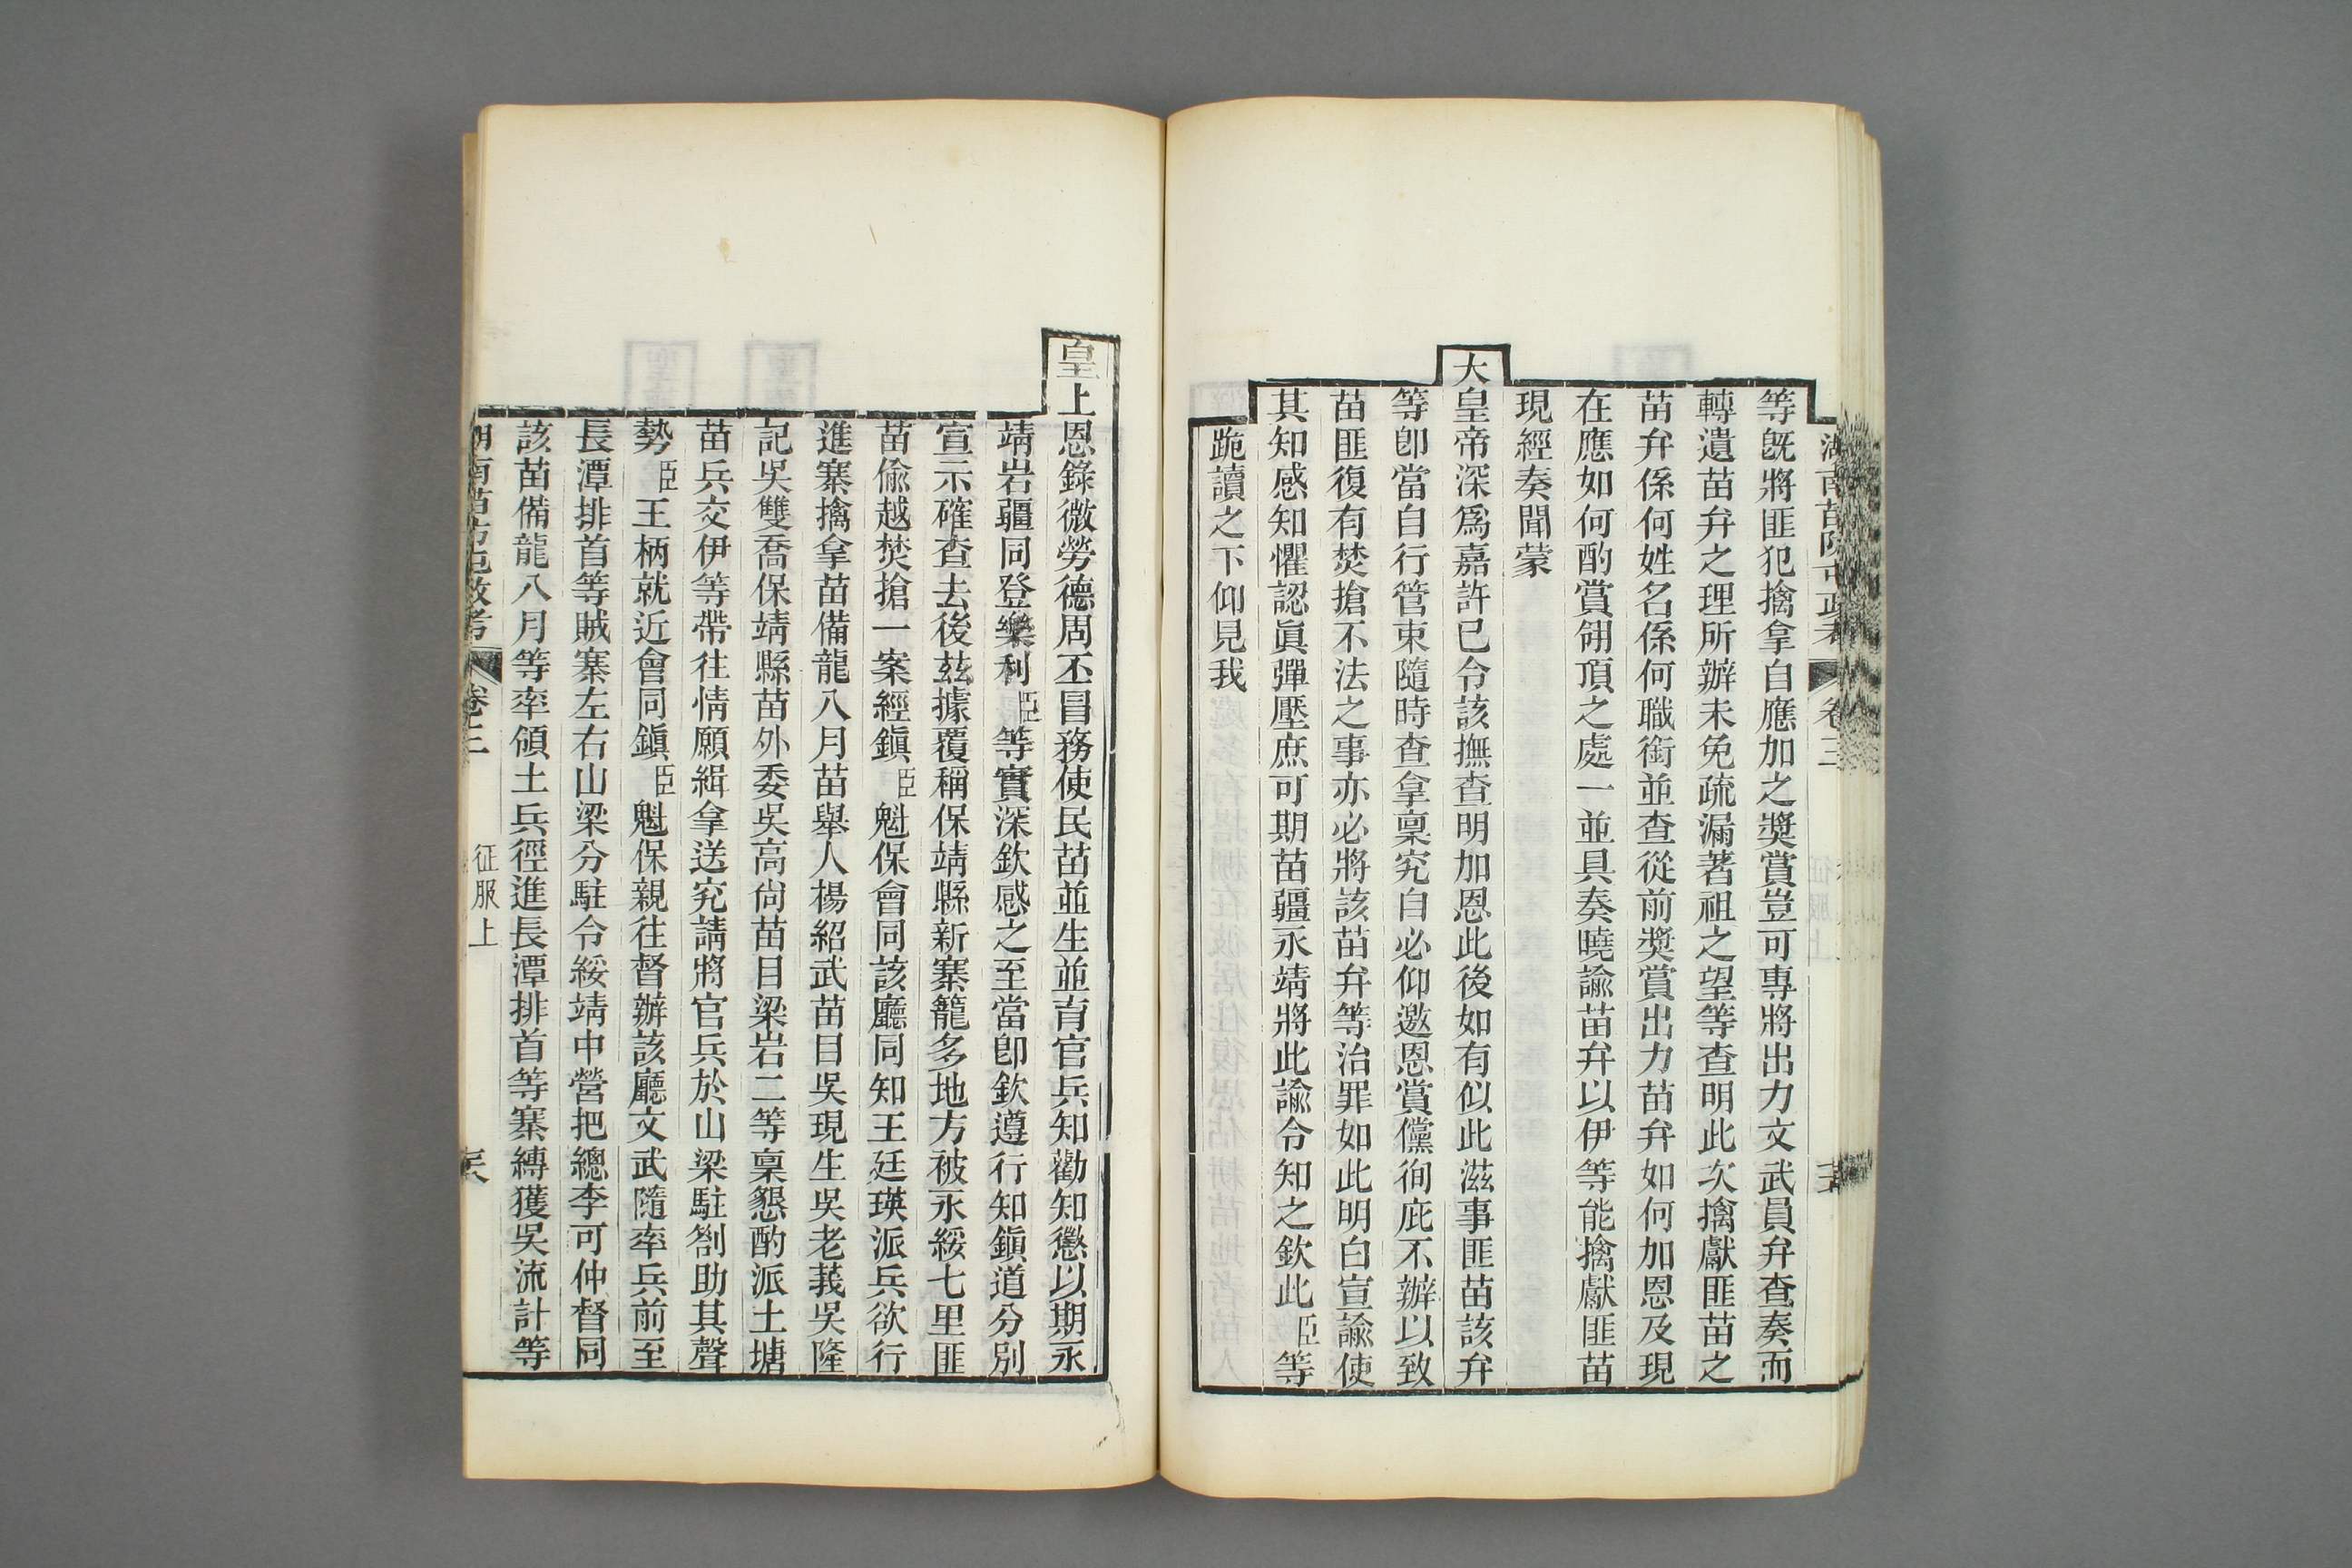 等旣將匪犯擒拿自應加之奬賞豈可專將出力文武員弁查奏而
轉遺苗弁之理所辦未免疏漏著祖之望等查明此次擒獻匪苗之
苗弁係何姓名係何職銜並查從前奬賞出力苗弁如何加恩及現
在應如何酌賞翎頂之處一並具奏曉諭苗弁以伊等能擒獻匪苗
現經奏聞蒙
大皇帝深爲嘉許已令該撫查明加恩此後如有似此滋事匪苗該弁
等卽當自行管束隨時查拿稟究自必仰邀恩賞儻徇庇不辦以致
苗匪復有焚搶不法之事亦必將該苗弁等治罪如此明白宣諭使
其知感知懼認眞彈壓庶可期苗疆永靖將此諭令知之欽此臣等
跪讀之下仰見我
皇上恩錄微勞德周丕冒務使民苗並生並育官兵知勸知懲以期永
靖岩疆同登樂利臣等實深欽感之至當卽欽遵行知鎭道分別
宣示確查去後茲據覆稱保靖縣新寨籠多地方被永綏七里匪
苗偸越焚搶一案經鎭臣魁保會同該廳同知王廷瑛派兵欲行
進寨擒拿苗備龍八月苗舉人楊紹武苗目吳現生吳老莪吳隆
記吳雙喬保靖縣苗外委吳高尙苗目梁岩二等稟懇酌派土塘
苗兵交伊等帶往情願緝拿送究請將官兵於山梁駐劄助其聲
勢臣王柄就近會同鎭臣魁保親往督辦該廳文武隨率兵前至
長潭排首等賊寨左右山梁分駐令綏靖中營把總李可仲督同
該苗備龍八月等率領土兵徑進長潭排首等寨縛獲吳流計等
湖南苗防屯政考
卷三
征服上